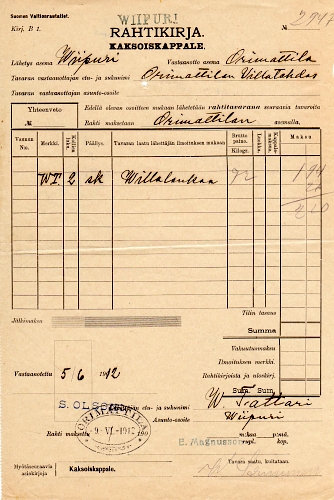 Suomen Valtionrautatiet.
Kirj. B 1.
WIIPURI
№ 2947
RAHTIKIRJA.
KAKSOISKAPPALE.
Lähetys asema Wiipuri Vastaanotto asema Orimattila
Tavaran vastaanottajan etu- ja sukunimi Orimattilan Villatehdas
Tavaran vastaanottajan asunto-osoite
Yhteenveto
№
Edellä olevan osoitteen mukaan lähetetään rahtitavarana seuraavia tavaroita
Rahti maksetaan Orimattilan asemalla.
Vaunun No. Merkki. Kolliluku. Päällys. Tavaran laatu lähettäjän ilmoituksen mukaan Brutto paino. Kilogr. Luokka. Kappalemaksu. Maksu
WT 2 sk Willalankaa 92 194
210
Jälkimaksu
Tilin tasaus
Summa
Vakuutusmaksu
Ilmoituksen merkki.
Rahtikirjoista ja nloskirj.
Sum. Sum.
Vastaanotettu 5/6 1912
W. Tattari
Wiipuri
S. OLSO
etu- ja sukunimi
Asunto-osoite
ORIMATTILA
9.VI.1912
Rahti maksettu
E. Magnusson
Myötäseuraavia asiakirjoja
Kaksoiskappale.
Tavara saatu, kuitataan.